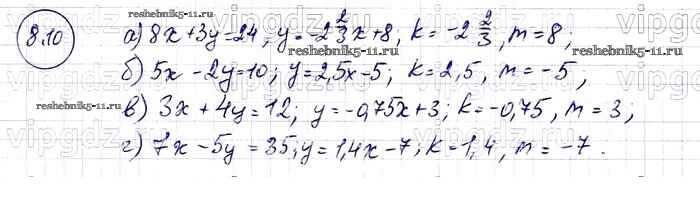 8.10 а) 8x + 3y = 24, y = -2 2/3 x + 8, k = -2 2/3, m = 8;
б) 5x - 2y = 10; y = 2,5x - 5; k = 2,5, m = -5;
в) 3x + 4y = 12; y = -0,75x + 3; k = -0,75, m = 3;
г) 7x - 5y = 35; y = 1,4x - 7; k = 1,4, m = -7.
reshebnik5-11.ru
reshebnik5-11.ru
reshebnik5-11.ru
vipgdz.ru